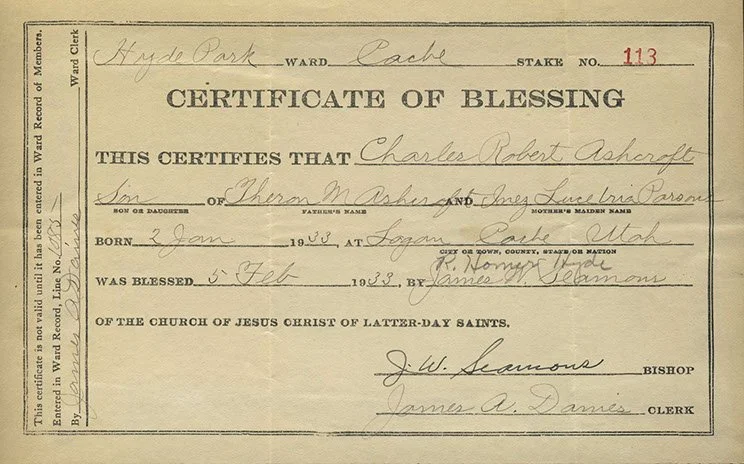 Hyde Park WARD Cache STAKE NO. 113
CERTIFICATE OF BLESSING
THIS CERTIFIES THAT Charles Robert Ashcroft
Son OF Theron M Ashcroft AND Inez Parsons
SON OR DAUGHTER FATHER'S NAME MOTHER'S MAIDEN NAME
BORN 2 Jan 1933, AT Logan Cache Utah
CITY OR TOWN, COUNTY, STATE OR NATION
R. Homer Hyde
WAS BLESSED 5 Feb 1933, BY James W. Seamons
OF THE CHURCH OF JESUS CHRIST OF LATTER-DAY SAINTS.
J. W. Seamons BISHOP
James A. CLERK
This certificate is not valid until it has been entered in Ward Record of Members.
Entered in Ward Record, Line No.
By James A. Ward Clerk